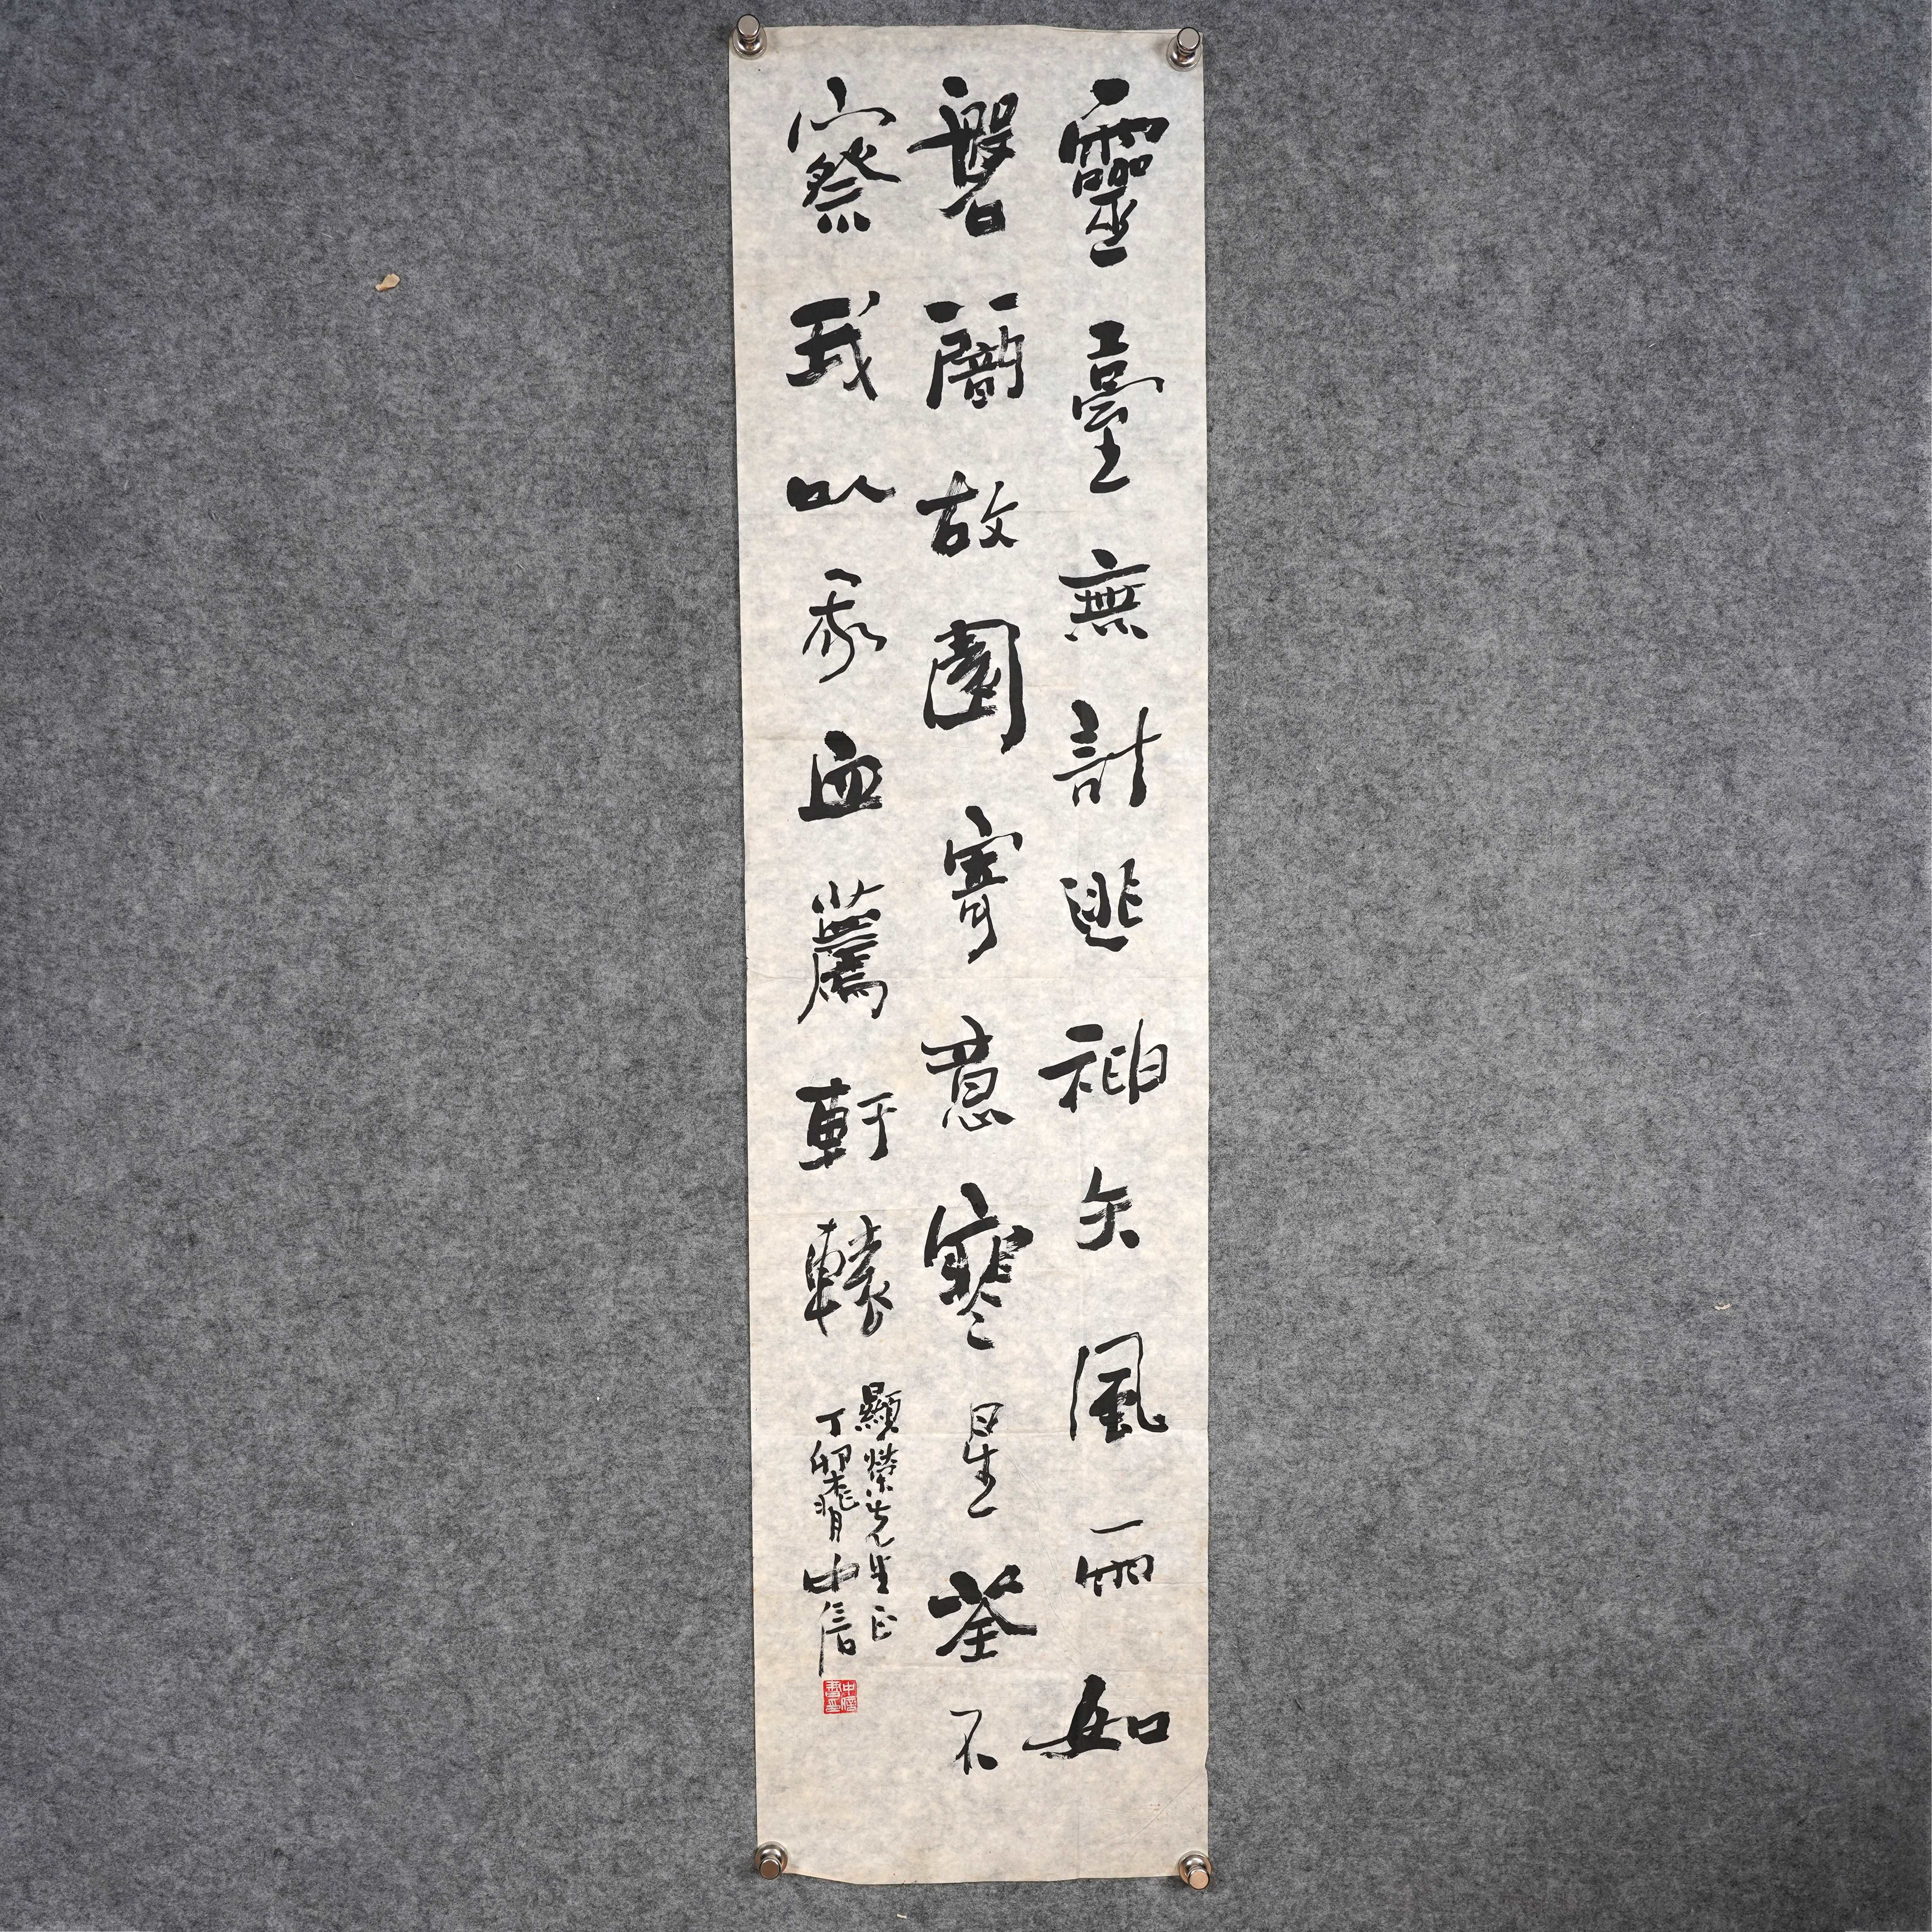 靈臺無計逃神矢風雨如
磐闇故園寄意寒星荃不
察我以我血薦軒轅
顯榮先生正
丁卯梅月中信